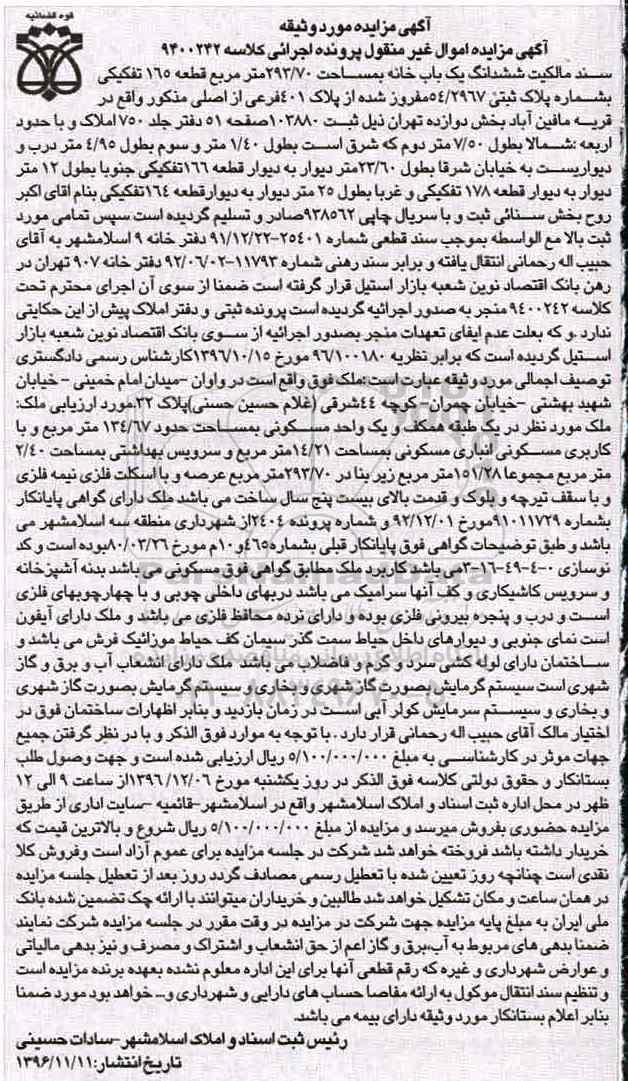 قوه قضائیه
آگهی مزایده مورد وثیقه
آگهی مزایده اموال غیر منقول پرونده اجرائی کلاسه ۹۴۰۰۲۴۲
سند مالکیت ششدانگ یک باب خانه بمساحت ۲۹۳/۷۰متر مربع قطعه ۱۶۵ تفکیکی
بشماره پلاک ثبتی ۵۴/۲۹۶۷مفروز شده از پلاک ۴۰۱فرعی از اصلی مذکور واقع در
قریه مافین آباد بخش دوازده تهران ذیل ثبت ۱۰۳۸۸۰صفحه ۵۱ دفتر جلد ۷۵۰ املاک و با حدود
اربعه :شمالا بطول ۷/۵۰ متر دوم که شرق است بطول ۱/۴۰ متر و سوم بطول ۴/۹۵ متر درب و
دیواریست به خیابان شرقا بطول ۲۳/۶۰متر دیوار به دیوار قطعه ۱۶۶تفکیکی جنوبا بطول ۱۲ متر
دیوار به دیوار قطعه ۱۷۸ تفکیکی و غربا بطول ۲۵ متر دیوار به دیوارقطعه ۱۶۴تفکیکی بنام اقای اکبر
روح بخش سنائی ثبت و با سریال چاپی ۹۳۸۵۶۲صادر و تسلیم گردیده است سپس تمامی مورد
ثبت بالا مع الواسطه بموجب سند قطعی شماره ۲۵۴۰۱-۹۱/۱۲/۲۲ دفتر خانه ۹ اسلامشهر به آقای
حبیب اله رحمانی انتقال یافته و برابر سند رهنی شماره ۱۱۷۹۳-۹۲/۰۶/۰۲ دفتر خانه ۹۰۷ تهران در
رهن بانک اقتصاد نوین شعبه بازار استیل قرار گرفته است ضمنا از سوی آن اجرای محترم تحت
کلاسه ۹۴۰۰۲۴۲ منجر به صدور اجرائیه گردیده است پرونده ثبتی و دفتر املاک پیش از این حکایتی
ندارد .و که بعلت عدم ایفای تعهدات منجر بصدور اجرائیه از سوی بانک اقتصاد نوین شعبه بازار
استیل گردیده است که برابر نظریه ۹۶/۱۰۰۱۸۰ مورخ ۱۳۹۶/۱۰/۱۵کارشناس رسمی دادگستری
توصیف اجمالی مورد وثیقه عبارت است :ملک فوق واقع است در واوان -میدان امام خمینی - خیابان
شهید بهشتی -خیابان چمران- کوچه ۴۴شرقی (غلام حسین حسنی)پلاک ۲۲مورد ارزیابی ملک:
ملک مورد نظر در یک طبقه همکف و یک واحد مسکونی بمساحت حدود ۱۳۴/۶۷ متر مربع و با
کاربری مسکونی انباری مسکونی بمساحت ۱۴/۲۱متر مربع و سرویس بهداشتی بمساحت ۲/۴۰
متر مربع مجموعا ۱۵۱/۲۸متر مربع زیر بنا در ۲۹۳/۷۰متر مربع عرصه و با اسکلت فلزی نیمه فلزی
و با سقف تیرچه و بلوک و قدمت بالای بیست پنج سال ساخت می باشد ملک دارای گواهی پایانکار
بشماره ۹۱۰۱۱۷۲۹مورخ ۹۲/۱۲/۰۱ و شماره پرونده ۲۴۰۴از شهرداری منطقه سه اسلامشهر می
باشد و طبق توضیحات گواهی فوق پایانکار قبلی بشماره۴۶۵و۱۰م مورخ ۸۰/۰۳/۲۶بوده است و کد
نوسازی ۰-۴-۴۹-۱۶-۳می باشد کاربرد ملک مطابق گواهی فوق مسکونی می باشد بدنه آشپزخانه
و سرویس کاشیکاری و کف آنها سرامیک می باشد دربهای داخلی چوبی و با چهارچوبهای فلزی
است و درب و پنجره بیرونی فلزی بوده و دارای نرده محافظ فلزی می باشد و ملک دارای آیفون
است نمای جنوبی و دیوارهای داخل حیاط سمت گذر سیمان کف حیاط موزائیک فرش می باشد و
ساختمان دارای لوله کشی سرد و گرم و فاضلاب می باشد ملک دارای انشعاب آب و برق و گاز
شهری است سیستم گرمایش بصورت گاز شهری و بخاری و سیستم گرمایش بصورت گاز شهری
و بخاری و سیستم سرمایش کولر آبی است در زمان بازدید و بنابر اظهارات ساختمان فوق در
اختیار مالک آقای حبیب اله رحمانی قرار دارد . با توجه به موارد فوق الذکر و با در نظر گرفتن جمیع
جهات موثر در کارشناسی به مبلغ ۵/۱۰۰/۰۰۰/۰۰۰ ریال ارزیابی شده است و جهت وصول طلب
بستانکار و حقوق دولتی کلاسه فوق الذکر در روز یکشنبه مورخ ۱۳۹۶/۱۲/۰۶از ساعت ۹ الی ۱۲
ظهر در محل اداره ثبت اسناد و املاک اسلامشهر واقع در اسلامشهر-قائمیه -سایت اداری از طریق
مزایده حضوری بفروش میرسد و مزایده از مبلغ ۵/۱۰۰/۰۰۰/۰۰۰ ریال شروع و بالاترین قیمت که
خریدار داشته باشد فروخته خواهد شد شرکت در جلسه مزایده برای عموم آزاد است وفروش کلا
نقدی است چنانچه روز تعیین شده با تعطیل رسمی مصادف گردد روز بعد از تعطیل جلسه مزایده
در همان ساعت و مکان تشکیل خواهد شد طالبین و خریداران میتوانند با ارائه چک تضمین شده بانک
ملی ایران به مبلغ پایه مزایده جهت شرکت در مزایده در وقت مقرر در جلسه مزایده شرکت نمایند
ضمنا بدهی های مربوط به آب،برق و گاز اعم از حق انشعاب و اشتراک و مصرف و نیز بدهی مالیاتی
و عوارض شهرداری و غیره که رقم قطعی آنها برای این اداره معلوم نشده بعهده برنده مزایده است
و تنظیم سند انتقال موکول به ارائه مفاصا حساب های دارایی و شهرداری و... خواهد بود مورد ضمنا
بنابر اعلام بستانکار مورد وثیقه دارای بیمه می باشد.
رئیس ثبت اسناد و املاک اسلامشهر-سادات حسینی
تاریخ انتشار:۱۳۹۶/۱۱/۱۱